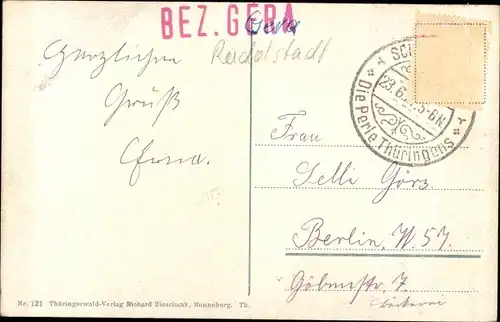 BEZ. GERA
Gera
Rudolstadt
Herzlichen
Gruß
Erna.
SC
23.6. 5-6N.
"Die Perle Thüringens"
Frau
Selli Görz
Berlin, W. 57.
Göbenstr. 7.
Nr. 121 Thüringerwald-Verlag Richard Zieschank, Ronneburg, Th.